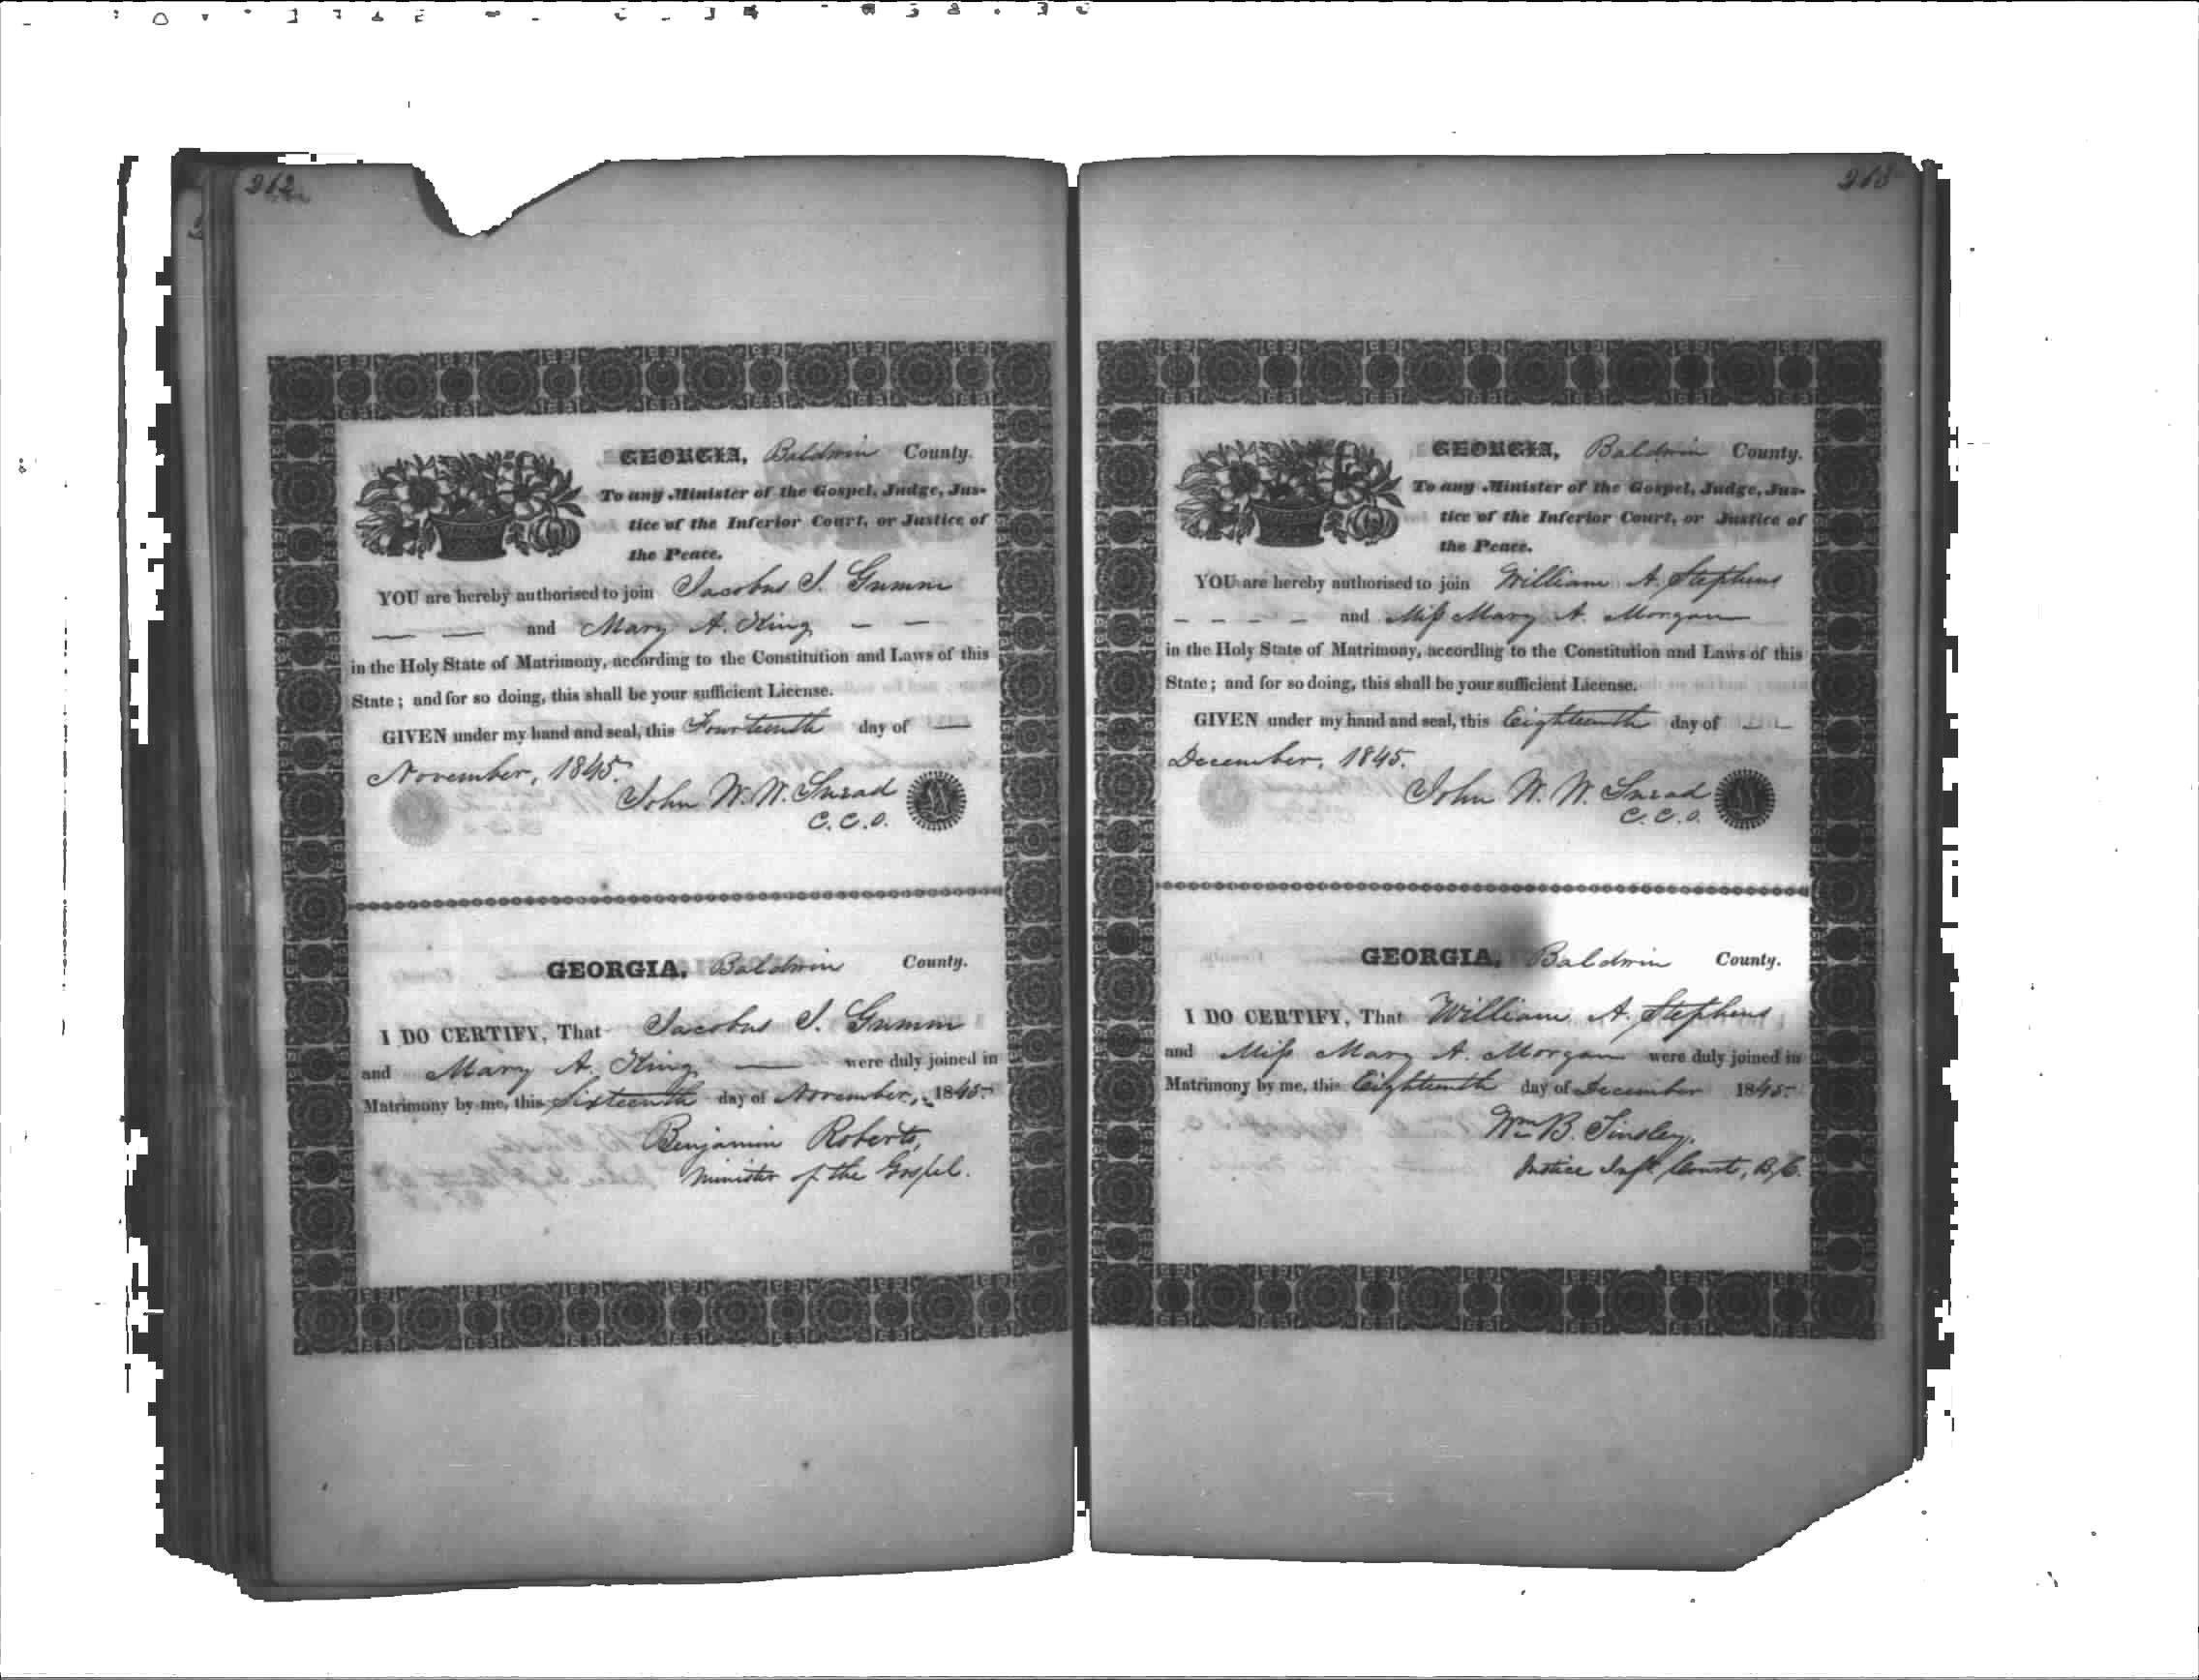 262
GEORGIA, Baldwin County.
To any Minister of the Gospel, Judge, Jus-
tice of the Inferior Court, or Justice of
the Peace.
YOU are hereby authorised to join Jacobus J. Gumm
— — and Mary A. King — —
in the Holy State of Matrimony, according to the Constitution and Laws of this
State; and for so doing, this shall be your sufficient License.
GIVEN under my hand and seal, this Fourteenth day of —
November, 1845.
John W. W. Snead
C. C. O.
GEORGIA, Baldwin County.
I DO CERTIFY, That Jacobus J. Gumm
and Mary A. King — were duly joined in
Matrimony by me, this Sixteenth day of November, 1845
Benjamin Roberts,
Minister of the Gospel.
263
GEORGIA, Baldwin County.
To any Minister of the Gospel, Judge, Jus-
tice of the Inferior Court, or Justice of
the Peace.
YOU are hereby authorised to join William A. Stephens
- - - - and Miss Mary A. Morgan
in the Holy State of Matrimony, according to the Constitution and Laws of this
State; and for so doing, this shall be your sufficient License.
GIVEN under my hand and seal, this Eighteenth day of - -
December, 1845.
John W. W. Snead
C. C. O.
GEORGIA, Baldwin County.
I DO CERTIFY, That William A. Stephens
and Miss Mary A. Morgan were duly joined in
Matrimony by me, this Eighteenth day of December 1845
Wm B. Tinsley,
Justice Infr. Court, B, C.